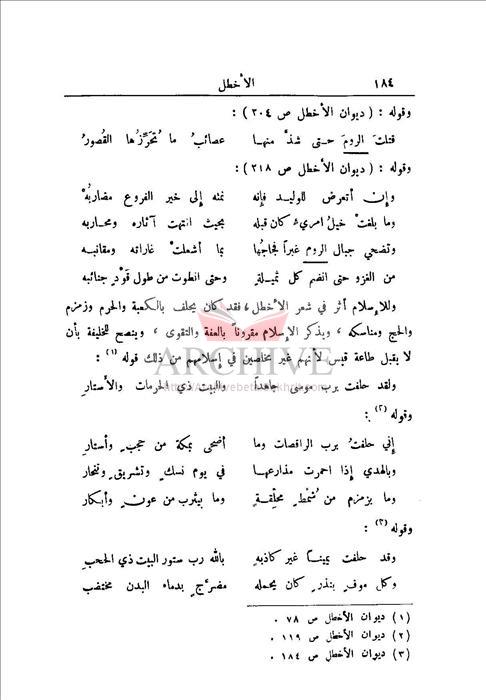 ١٨٤ الأخطل
وقوله : ( ديوان الأخطل ص ٢٠٤ ) :
قتلتَ الرومَ حتى شذَّ منها عصائبُ ما تُحَرِّزُها القُصورُ
وقوله : ( ديوان الأخطل ص ٢١٨ ) :
وإن أتعرض للوليد فإنه نمته إلى خير الفروع مضاربُهْ
وما بلغتْ خيلُ امرىءٍ كان قبله بحيث انتهت آثاره ومحاربه
وتضحي جبال الروم غبراً فجاجُها بما أشعلتْ غاراته ومقانبه
من الغزو حتى انضم كل ثميلةٍ وحتى انطوت من طول قَوْدٍ جنائبه
وللإسلام أثر في شعر الأخطل ، فقد كان يحلف بالكعبة والحرم وزمزم
والحج ومناسكه ، ويذكر الإسلام مقروناً بالعفة والتقوى ، وينصح للخليفة بأن
لا يقبل طاعة قيس لأنهم غير مخلصين في إسلامهم من ذلك قوله (١) :
ARCHIVE
ولقد حلفت برب موسى جاهداً والبيت ذي الحرمات والأستارِ
وقوله (٢) :
إني حلفتُ برب الراقصات وما أضحى بمكة من حجبٍ وأستارِ
وبالهدي إذا احمرت مذارعها في يوم نسكٍ وتشريقٍ وتنحار
وما بزمزم من شُمْطٍ محلّقةٍ وما بيثرب من عونٍ وأبكار
وقوله (٣) :
وقد حلفت يميناً غير كاذبةٍ بالله رب ستور البيت ذي الحجبِ
وكل موفٍ بنذرٍ كان يحمله مضرَّجٍ بدماء البدن مختضب
(١) ديوان الأخطل ص ٧٨ .
(٢) ديوان الأخطل ص ١١٩ .
(٣) ديوان الأخطل ص ١٨٤ .